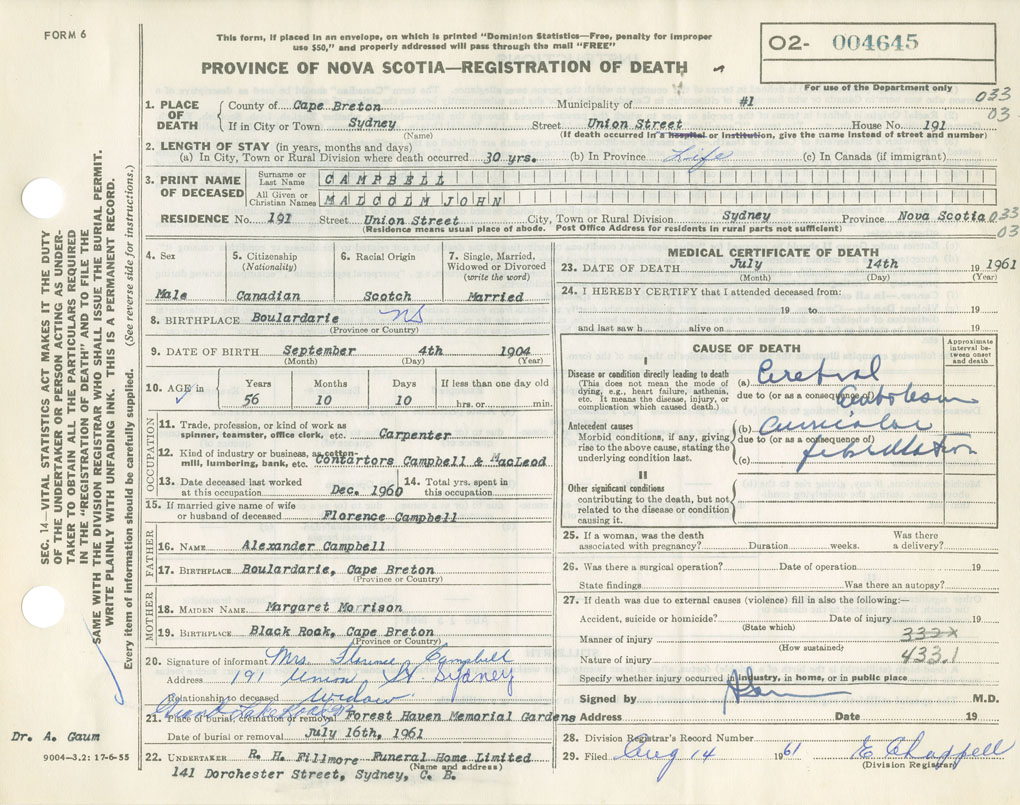 FORM 6
This form, if placed in an envelope, on which is printed "Dominion Statistics—Free, penalty for improper
use $50," and properly addressed will pass through the mail "FREE"
PROVINCE OF NOVA SCOTIA—REGISTRATION OF DEATH
O2- 004645
For use of the Department only
033
03
1. PLACE OF DEATH
County of Cape Breton Municipality of #1
If in City or Town Sydney Street Union Street House No. 191
(Name) (If death occurred in a hospital or institution, give the name instead of street and number)
2. LENGTH OF STAY (in years, months and days)
(a) In City, Town or Rural Division where death occurred 30 yrs. (b) In Province Life (c) In Canada (if immigrant)
3. PRINT NAME OF DECEASED
Surname or Last Name CAMPBELL
All Given or Christian Names MALCOLM JOHN
RESIDENCE No. 191 Street Union Street City, Town or Rural Division Sydney Province Nova Scotia 033
(Residence means usual place of abode. Post Office Address for residents in rural parts not sufficient) 03
4. Sex
Male
5. Citizenship
(Nationality)
Canadian
6. Racial Origin
Scotch
7. Single, Married,
Widowed or Divorced
(write the word)
Married
8. BIRTHPLACE Boulardarie NS
(Province or Country)
9. DATE OF BIRTH September 4th 1904
(Month) (Day) (Year)
10. AGE in
Years Months Days If less than one day old
56 10 10 hrs. or min.
OCCUPATION
11. Trade, profession, or kind of work as
spinner, teamster, office clerk, etc. Carpenter
12. Kind of industry or business, as cotton-
mill, lumbering, bank, etc. Contartors Campbell & MacLeod
13. Date deceased last worked
at this occupation Dec. 1960
14. Total yrs. spent in
this occupation
15. If married give name of wife
or husband of deceased Florence Campbell
FATHER
16. NAME Alexander Campbell
17. BIRTHPLACE Boulardarie, Cape Breton
(Province or Country)
MOTHER
18. MAIDEN NAME Margaret Morrison
19. BIRTHPLACE Black Roak, Cape Breton
(Province or Country)
20. Signature of informant Mrs. Florence Campbell
Address 191 Union St. Sydney
Relationship to deceased Widow
21. Place of burial, cremation or removal Forest Haven Memorial Gardens
Date of burial or removal July 16th, 1961
22. UNDERTAKER R. H. Fillmore Funeral Home Limited
(Name and address)
141 Dorchester Street, Sydney, C. B.
MEDICAL CERTIFICATE OF DEATH
23. DATE OF DEATH July 14th 19 1961
(Month) (Day) (Year)
24. I HEREBY CERTIFY that I attended deceased from:
19 to 19
and last saw h alive on 19
CAUSE OF DEATH
Approximate
interval be-
tween onset
and death
I
Disease or condition directly leading to death
(This does not mean the mode of
dying, e.g., heart failure, asthenia,
etc. It means the disease, injury, or
complication which caused death.)
(a) Cerebral
due to (or as a consequence of)
Embolism
Antecedent causes
Morbid conditions, if any, giving
rise to the above cause, stating the
underlying condition last.
(b) auricular
due to (or as a consequence of)
(c) fibrillation
II
Other significant conditions
contributing to the death, but not
related to the disease or condition
causing it.
25. If a woman, was the death
associated with pregnancy? Duration weeks. Was there
a delivery?
26. Was there a surgical operation? Date of operation 19
State findings Was there an autopsy?
27. If death was due to external causes (violence) fill in also the following:—
Accident, suicide or homicide? Date of injury 19
(State which)
Manner of injury 332X
(How sustained)
Nature of injury 433.1
Specify whether injury occurred in industry, in home, or in public place
Signed by M.D.
Address Date 19
28. Division Registrar's Record Number
29. Filed Aug 14 1961 E Chappell
(Division Registrar)
SEC. 14—VITAL STATISTICS ACT MAKES IT THE DUTY
OF THE UNDERTAKER OR PERSON ACTING AS UNDER-
TAKER TO OBTAIN ALL THE PARTICULARS REQUIRED
IN THE "REGISTRATION OF DEATH" AND TO FILE THE
SAME WITH THE DIVISION REGISTRAR WHO SHALL ISSUE THE BURIAL PERMIT.
WRITE PLAINLY WITH UNFADING INK. THIS IS A PERMANENT RECORD.
Every item of information should be carefully supplied. (See reverse side for instructions.)
Dr. A. Gaum
9004-3.2: 17-6-55